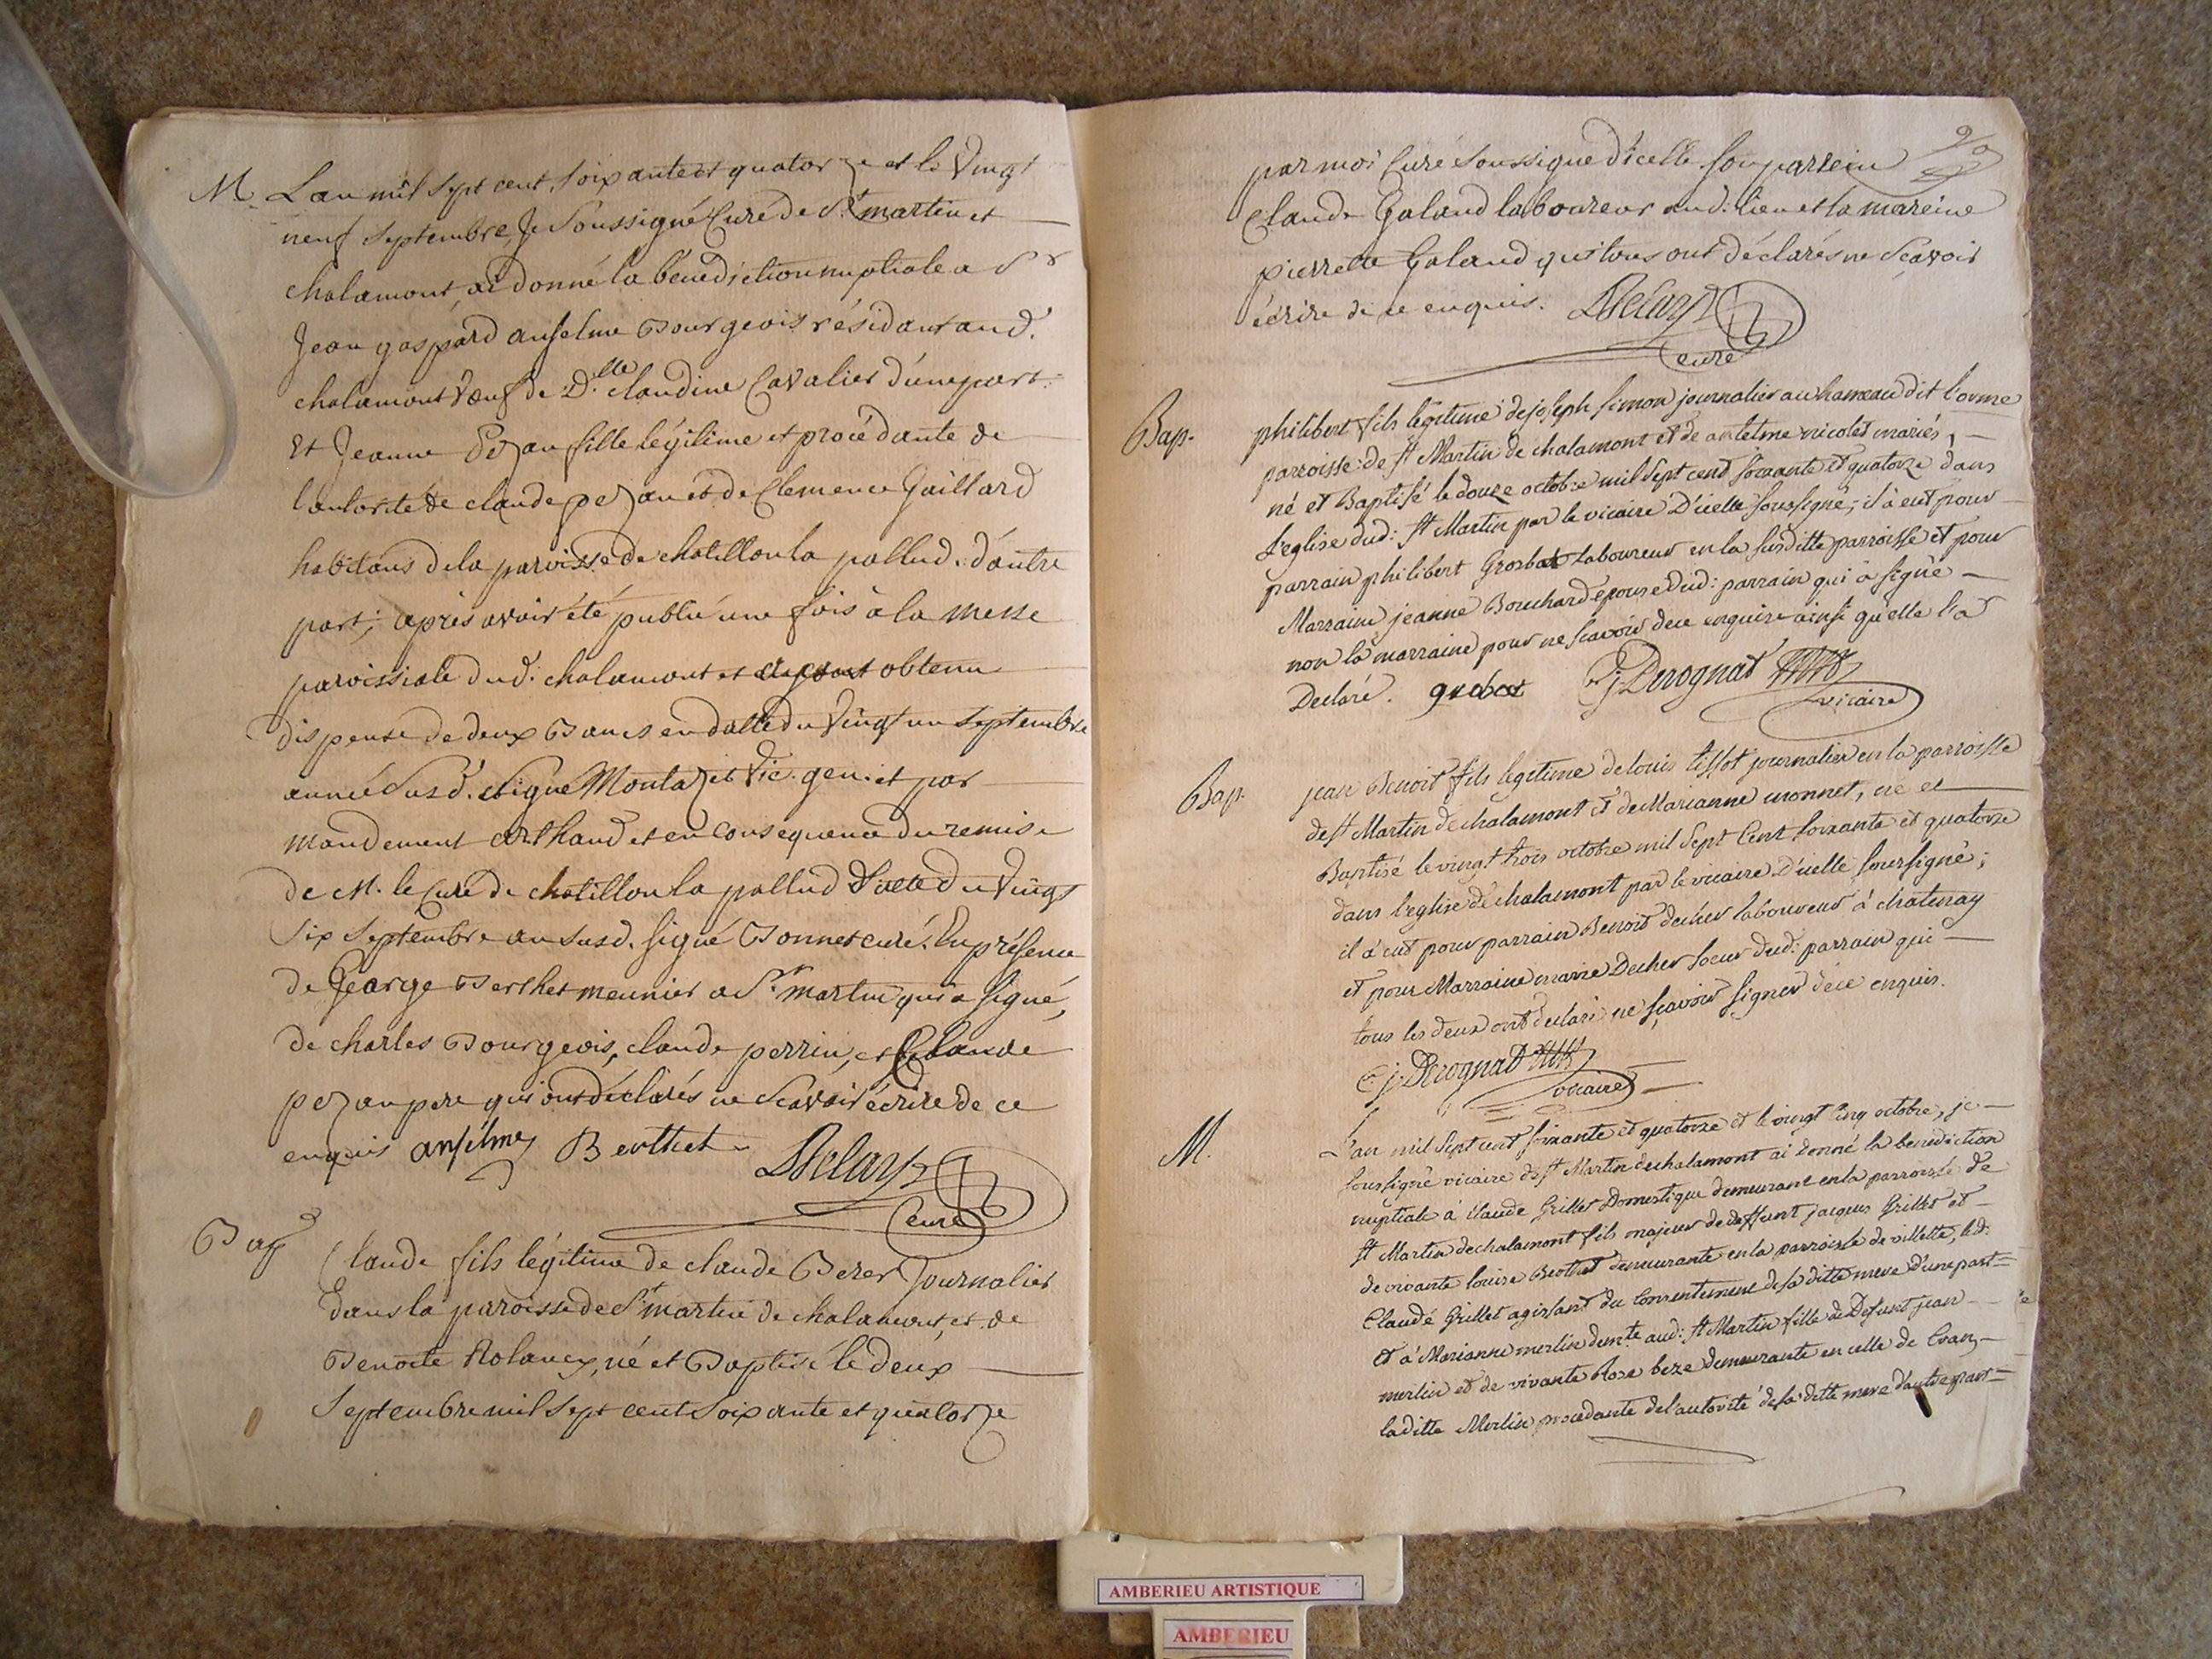 M. L'an mil sept cent soixante et quatorze et le vingt
neuf septembre, Je soussigné Curé de St martin et
chalamont ai donné la bénédiction nuptiale a Sr
Jean gaspard anselme Bourgeois résidant aud.
chalamont veuf de D.lle claudine Cavalier d'une part.
Et Jeanne Pezan fille légitime et procédante de
l'autorité de claude pezan et de Clemence Gaillard
habitans de la paroisse de chatillon la pallud. d'autre
part; après avoir été publié une fois à la messe
paroissiale dud. chalamont et obtenu
dispense de deux Bancs en datte du vingt un septembre
année susd. signé Montazet vic. gen. et par
mandement arthaud et en consequence du remise
de M. le Curé de chatillon la pallud datté du vingt
six septembre an susd. signé Bonnet curé. En présence
de George Berthet meunier a St martin qui a signé,
de charles Bourgeois, claude perrin, et Claude
pezan pere qui ont déclarés ne scavoir écrire de ce
enquis anselme Berthet Delary
Curé
Bap Claude fils légitime de claude Berer Journalier
dans la paroisse de St martin de chalamont, et de
Benoite Rolancy, né et Baptisé le deux
Septembre mil sept cent soixante et quatorze
par moi Curé soussigné d'icelle son parrein
Claude Galand laboureur aud. lieu et la mareine
pierrette Galand qui tous ont déclarés ne scavoir
écrire de ce enquis. Delary
curé
Bap. philibert fils légitime de joseph simon journalier au hameau dit l'orme
parroisse de st Martin de chalamont et de antelme nicolet mariés,
né et Baptisé le douze octobre mil sept cent soixante et quatorze dans
l'eglise dud: st Martin par le vicaire D'icelle soussigné; il à eut pour
parrain philibert Grosbat laboureur en la susditte parroisse et pour
Marraine jeanne Bouchard epouse dud: parrain qui à signé
non la marraine pour ne scavoir de ce enquise ainsi qu'elle l'a
Declaré. grobat j: Derognat
vicaire
Bap. jean Benoit fils legitime de louis tissot journalier en la parroisse
de st Martin de chalamont et de Marianne monnet, né et
Baptisé le vingt trois octobre mil sept Cent soixante et quatorze
dans l'eglise de chalamont par le vicaire D'icelle soussigné;
il à eut pour parrain Benoit decher laboureur à chatenay
et pour Marraine marie Decher soeur dud: parrain qui
tous les deux ont declaré ne sçavoir signer de ce enquis.
j: Derognat
vicaire
M. L'an mil sept cent soixante et quatorze et le vingt cinq octobre, je
soussigné vicaire de st Martin de chalamont ai donné la benediction
nuptiale à Claude Grillet Domestique demeurant en la parroisse de
st Martin de chalamont fils majeur de deffunt jacques Grillet et
de vivante louise Berthet demeurante en la parroisse de villette, led:
Claude Grillet agissant du Consentement de sa ditte mere d'une part
et à Marianne merlin demte aud: st Martin fille de Defunt jean
merlin et de vivante Rose beze demeurante en celle de Crans
laditte Merlin procedante de l'autorité de sa ditte mere d'autre part
AMBERIEU ARTISTIQUE
AMBERIEU